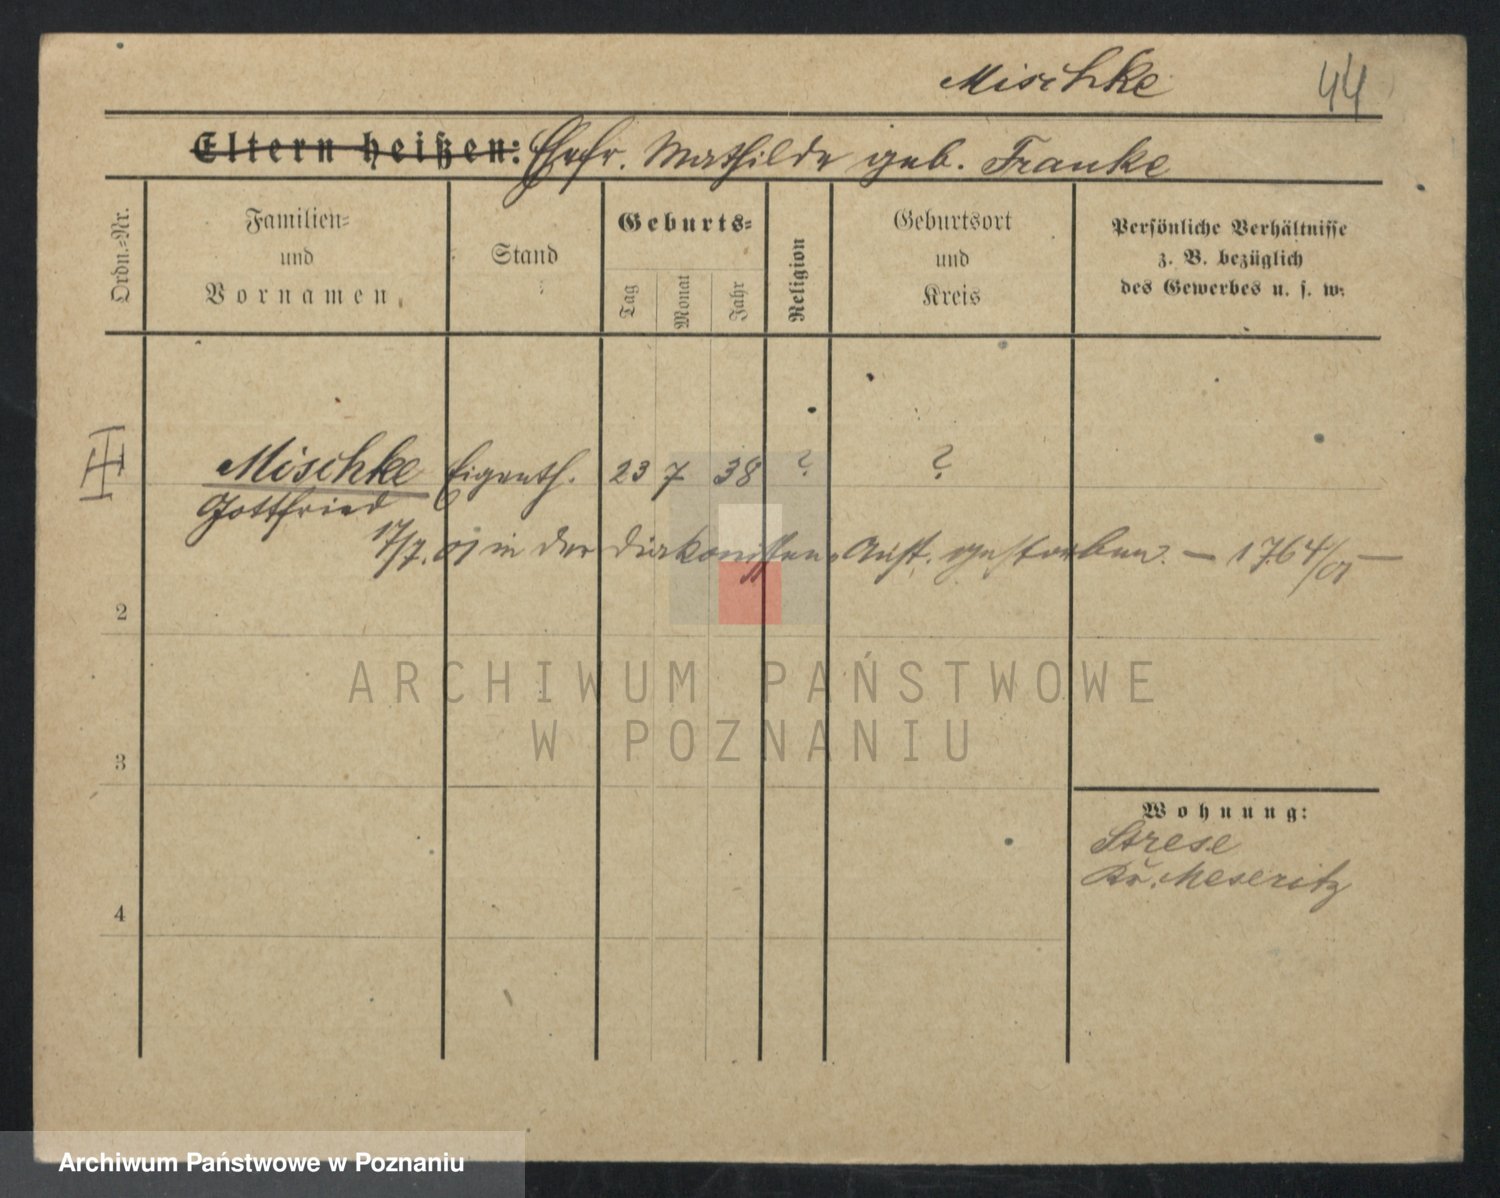 Mischke
44
Eltern heißen: Ehefr. Mathilde geb. Franke
Ordn.-Nr.
Familien-
und
Vornamen.
Stand
Geburts-
Tag
Monat
Jahr
Religion
Geburtsort
und
Kreis
Persönliche Verhältnisse
z. B. bezüglich
des Gewerbes u. s. w.
Mischke Eigenth. 23 7 38 ? ?
Gottfried
17/7. 01 in der Diakonissen-Anst. gestorben. — 1764/01 —
2
ARCHIWUM PAŃSTWOWE
W POZNANIU
3
Wohnung:
Strese
Kr. Meseritz
4
Archiwum Państwowe w Poznaniu